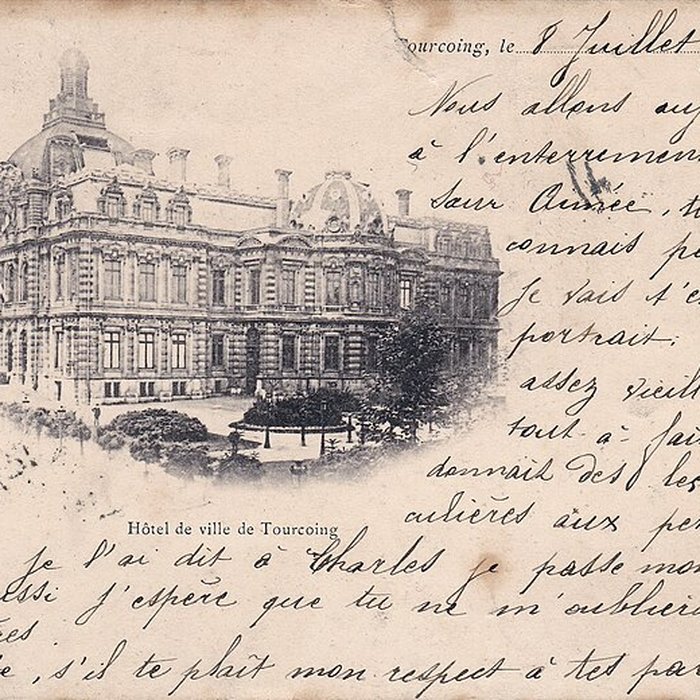 Tourcoing, le 8 Juillet
Nous allons auj
à l'enterremen
Sœur Aimée, t
connais pa
Je vais t'e
portrait.
assez vieill
tout à fai
donnait des le
culières aux pe
Hôtel de ville de Tourcoing
je l'ai dit à Charles je passe mon
ssi j'espère que tu ne m'oublier
res
, s'il te plaît mon respect à tes par